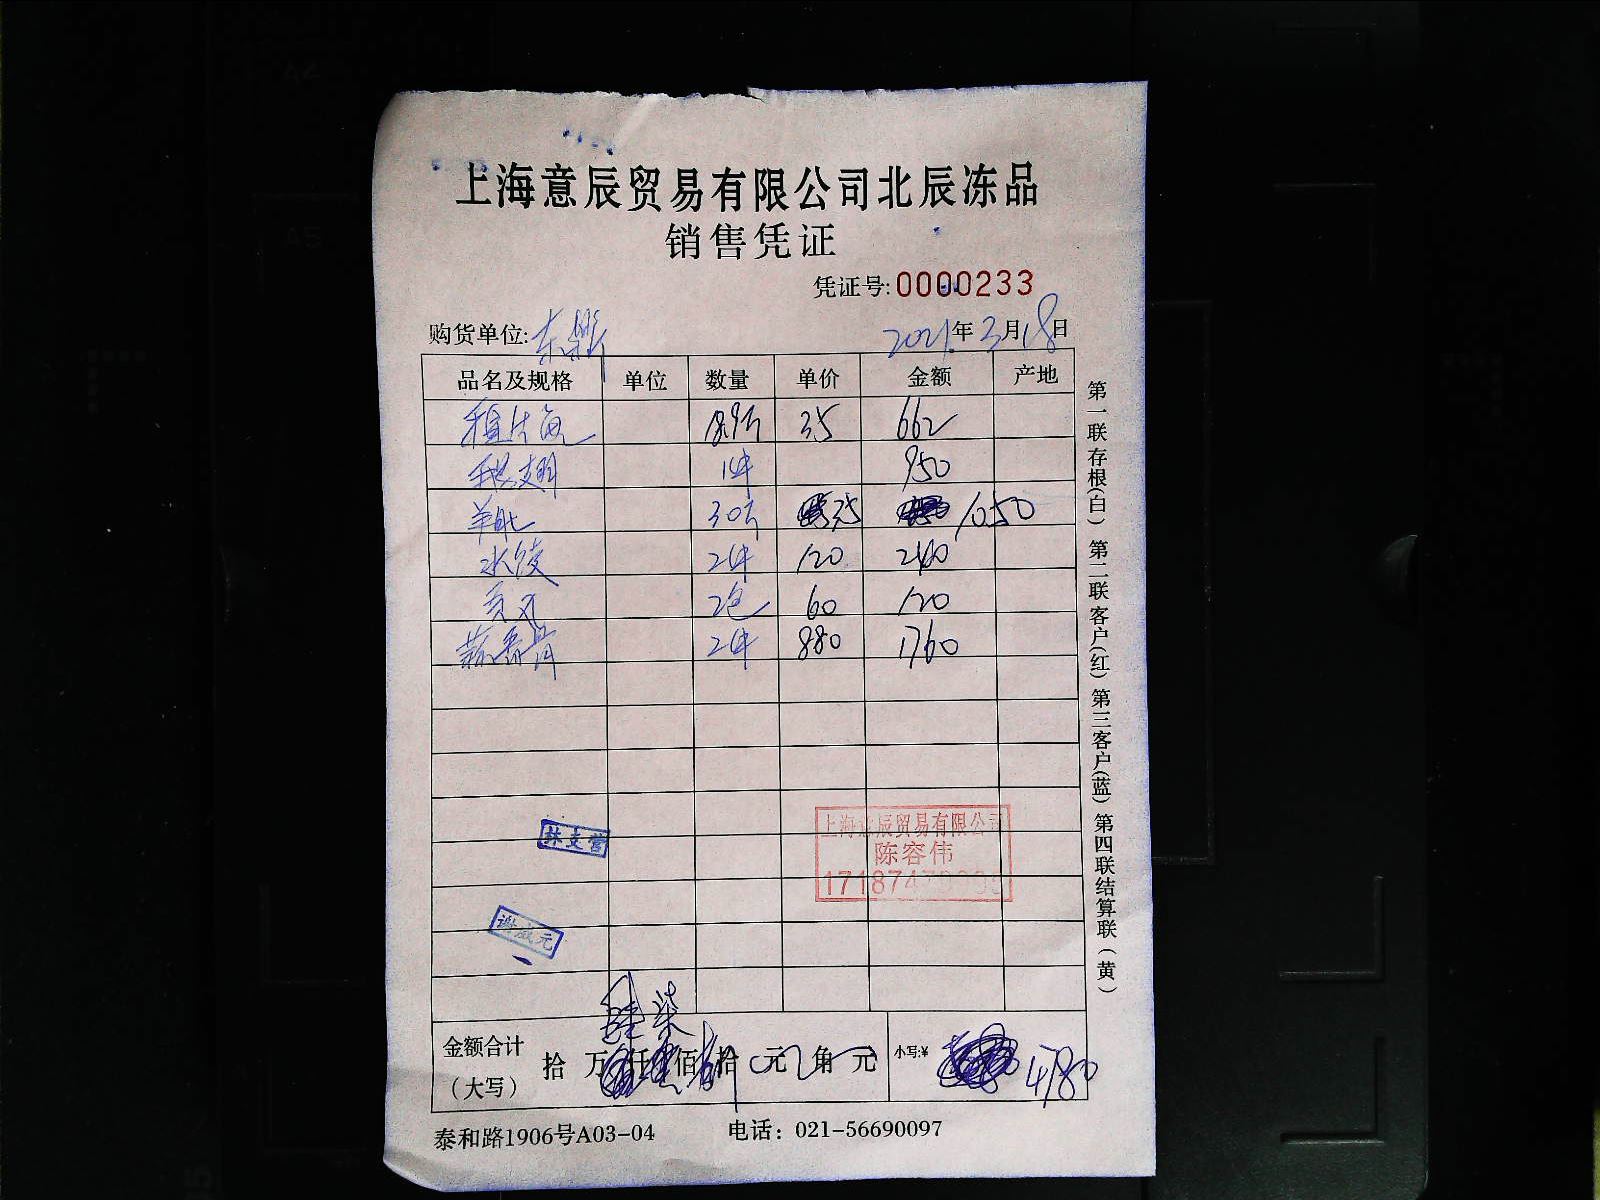 上海意辰贸易有限公司北辰冻品
销售凭证
凭证号:0000233
购货单位: 2021年3月18日
品名及规格 单位 数量 单价 金额 产地
18.9斤 35 662
1件 950
羊肚 30斤 35 1050
水饺 2件 120 240
贡丸 2包 60 120
蒜香骨 2件 880 1760
上海意辰贸易有限公司
陈容伟
金额合计
(大写)
拾 万 仟 佰 拾 元 角 元 小写:¥ 4780
泰和路1906号A03-04 电话: 021-56690097
第一联存根(白) 第二联客户(红) 第三客户(蓝) 第四联结算联(黄)